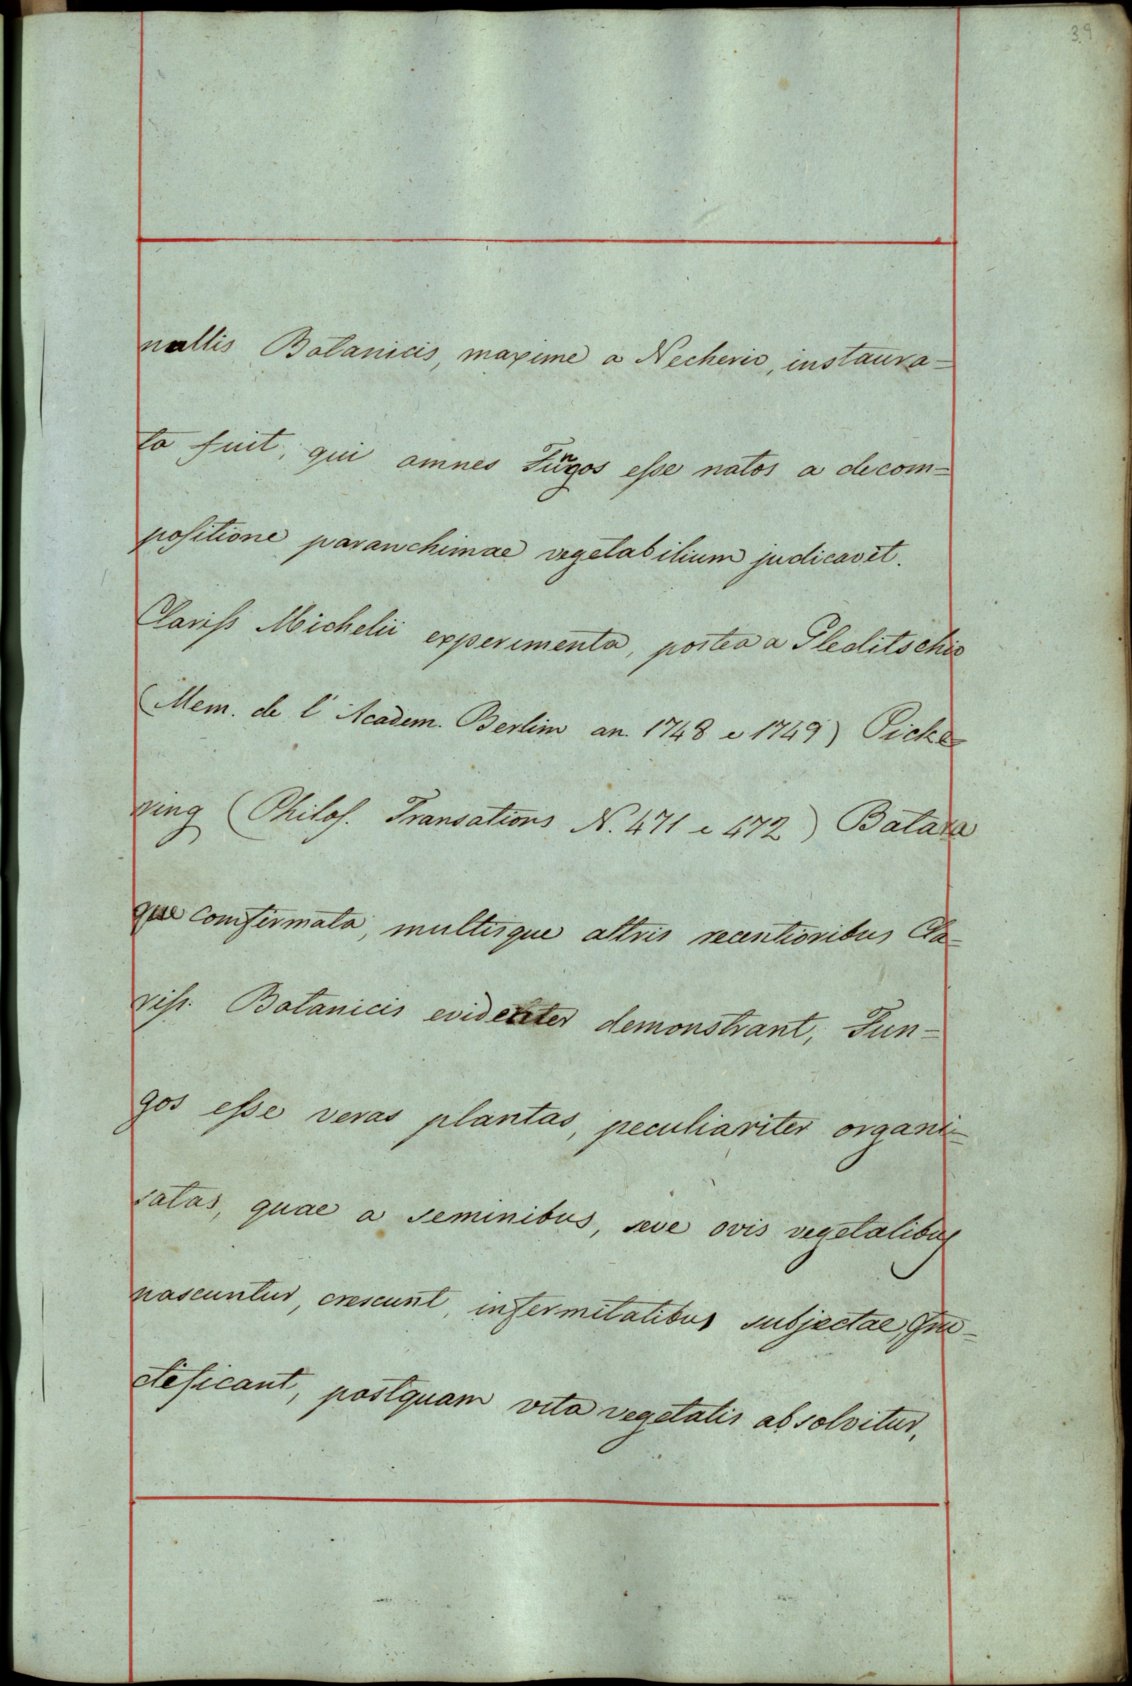 39
nullis Botanicis, maxime a Necherio, instaura=
to fuit, qui omnes Fũgos eſse natos a decom=
poſitione paranchimae vegetabilium judicavit.
Clariſs Michelii experimenta, postea a Gleditschio
(Mem. de l'Academ. Berlim an. 1748 e 1749) Picke=
ring (Philoſ. Transations N. 471 e 472) Batara
que comfirmata, multisque altris recentioribus Cla=
riſs. Botanicis evidenter demonstrant, Fun=
gos eſse veras plantas, peculiariter organi=
satas, quae a seminibus, sive ovis vegetalibus
nascuntur, crescunt, infermitatibus subjectae, fru=
ctificant, postquam vita vegetalis absolvitur,